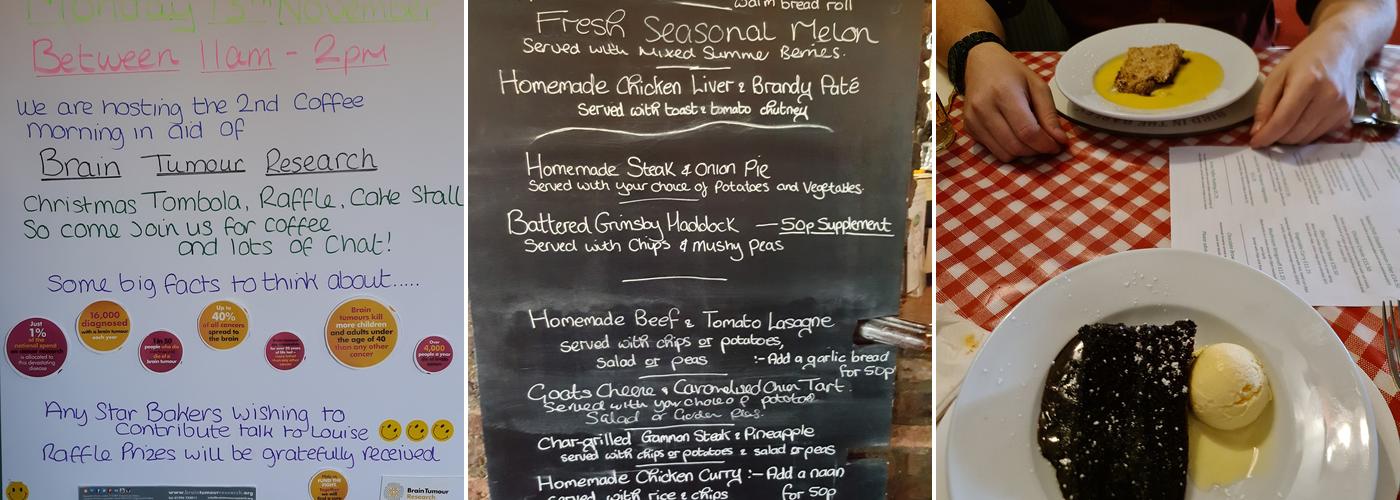 Monday 13th November
Between 11am - 2pm
We are hosting the 2nd Coffee
morning in aid of
Brain Tumour Research
Christmas Tombola, Raffle, Cake Stall
So come Join us for coffee
and lots of Chat!
Some big facts to think about.....
Just
1%
of the
national spend
is allocated to
this devastating
disease
16,000
diagnosed
with a brain tumour
each year
1 in 50
people who die
brain tumour
Up to
40%
of all cancers
spread to
the brain
Brain
tumours kill
more children
and adults under
the age of 40
than any other
cancer
Over
4,000
people a year
Any Star Bakers wishing to
contribute talk to Louise
Raffle Prizes will be gratefully received
www.braintumourresearch.org
FUND THE
FIGHT
Brain Tumour
Research
warm bread roll
Fresh Seasonal Melon
Served with Mixed Summe Berries.
Homemade Chicken Liver & Brandy Paté
Served with toast & tomato chutney
Homemade Steak & Onion Pie
Served with your choice of Potatoes and Vegetables.
Battered Grimsby Haddock — 50p Supplement
Served with Chips & Mushy Peas
Homemade Beef & Tomato Lasagne
served with chips or potatoes,
salad or peas :- Add a garlic bread
for 50p
Goats Cheese & Caramelised Onion Tart.
Served with your choice of potatoes
Salad or Garden Peas.
Char-grilled Gammon Steak & Pineapple
served with chips or potatoes & salad or peas
Homemade Chicken Curry :- Add a naan
served with rice & chips for 50p